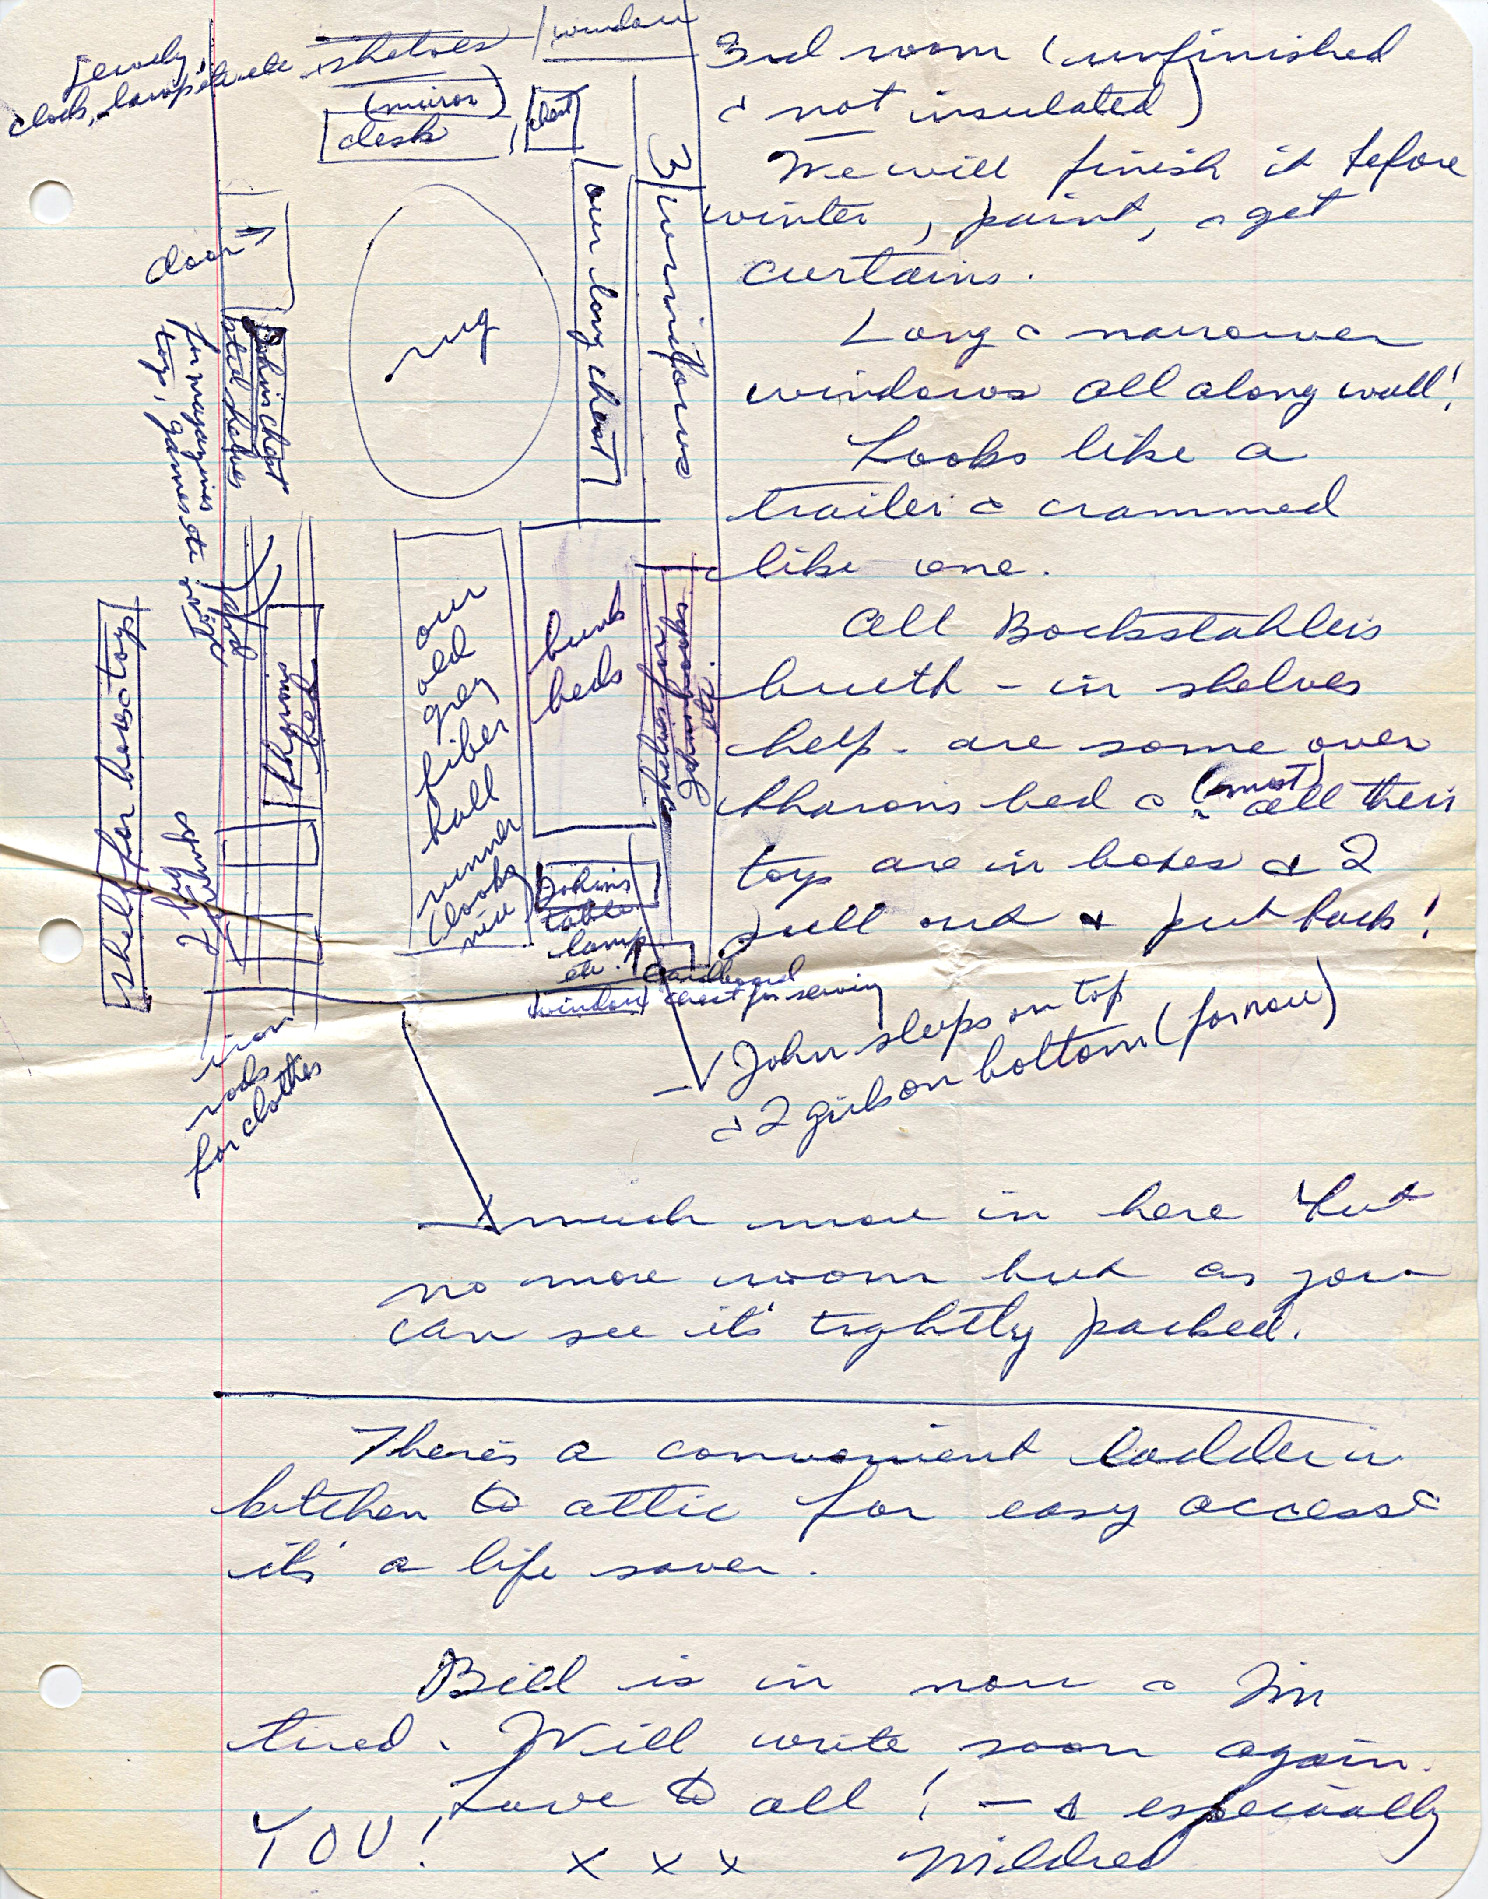 Jewely,
clock, lamp etc etc
shelves
window
(mirror)
desk
chest
3rd room (unfinished
& not insulated)
We will finish it before
winter, paint, & get
curtains.
Long & narrower
windows all along wall!
Looks like a
trailer & crammed
like one.
All Bockstahlers
built-in shelves
help - are some over
Sharons bed & (most) all their
toys are in boxes & I
pull out & put back!
door
rug
our long chest
3 windows
John's chest
and shelves
for magazines
toys, games etc
shelf for hose toys
Sharons
bed
2 big
our
old
grey
fiber
hall
runner
(looks
nice)
bunk
beds
John's
table
lamp
etc.
(window)
cardboard
chest for sewing
iron
rods
for clothes
John sleeps on top
& 2 girls on bottom (for now)
much more in here but
no more room but as you
can see it's tightly packed.
There's a convenient ladder in
kitchen to attic for easy access &
it's a life saver.
Bill is in now & I'm
tired. Will write soon again.
Love to all! - & especially
YOU!
x x x Mildred